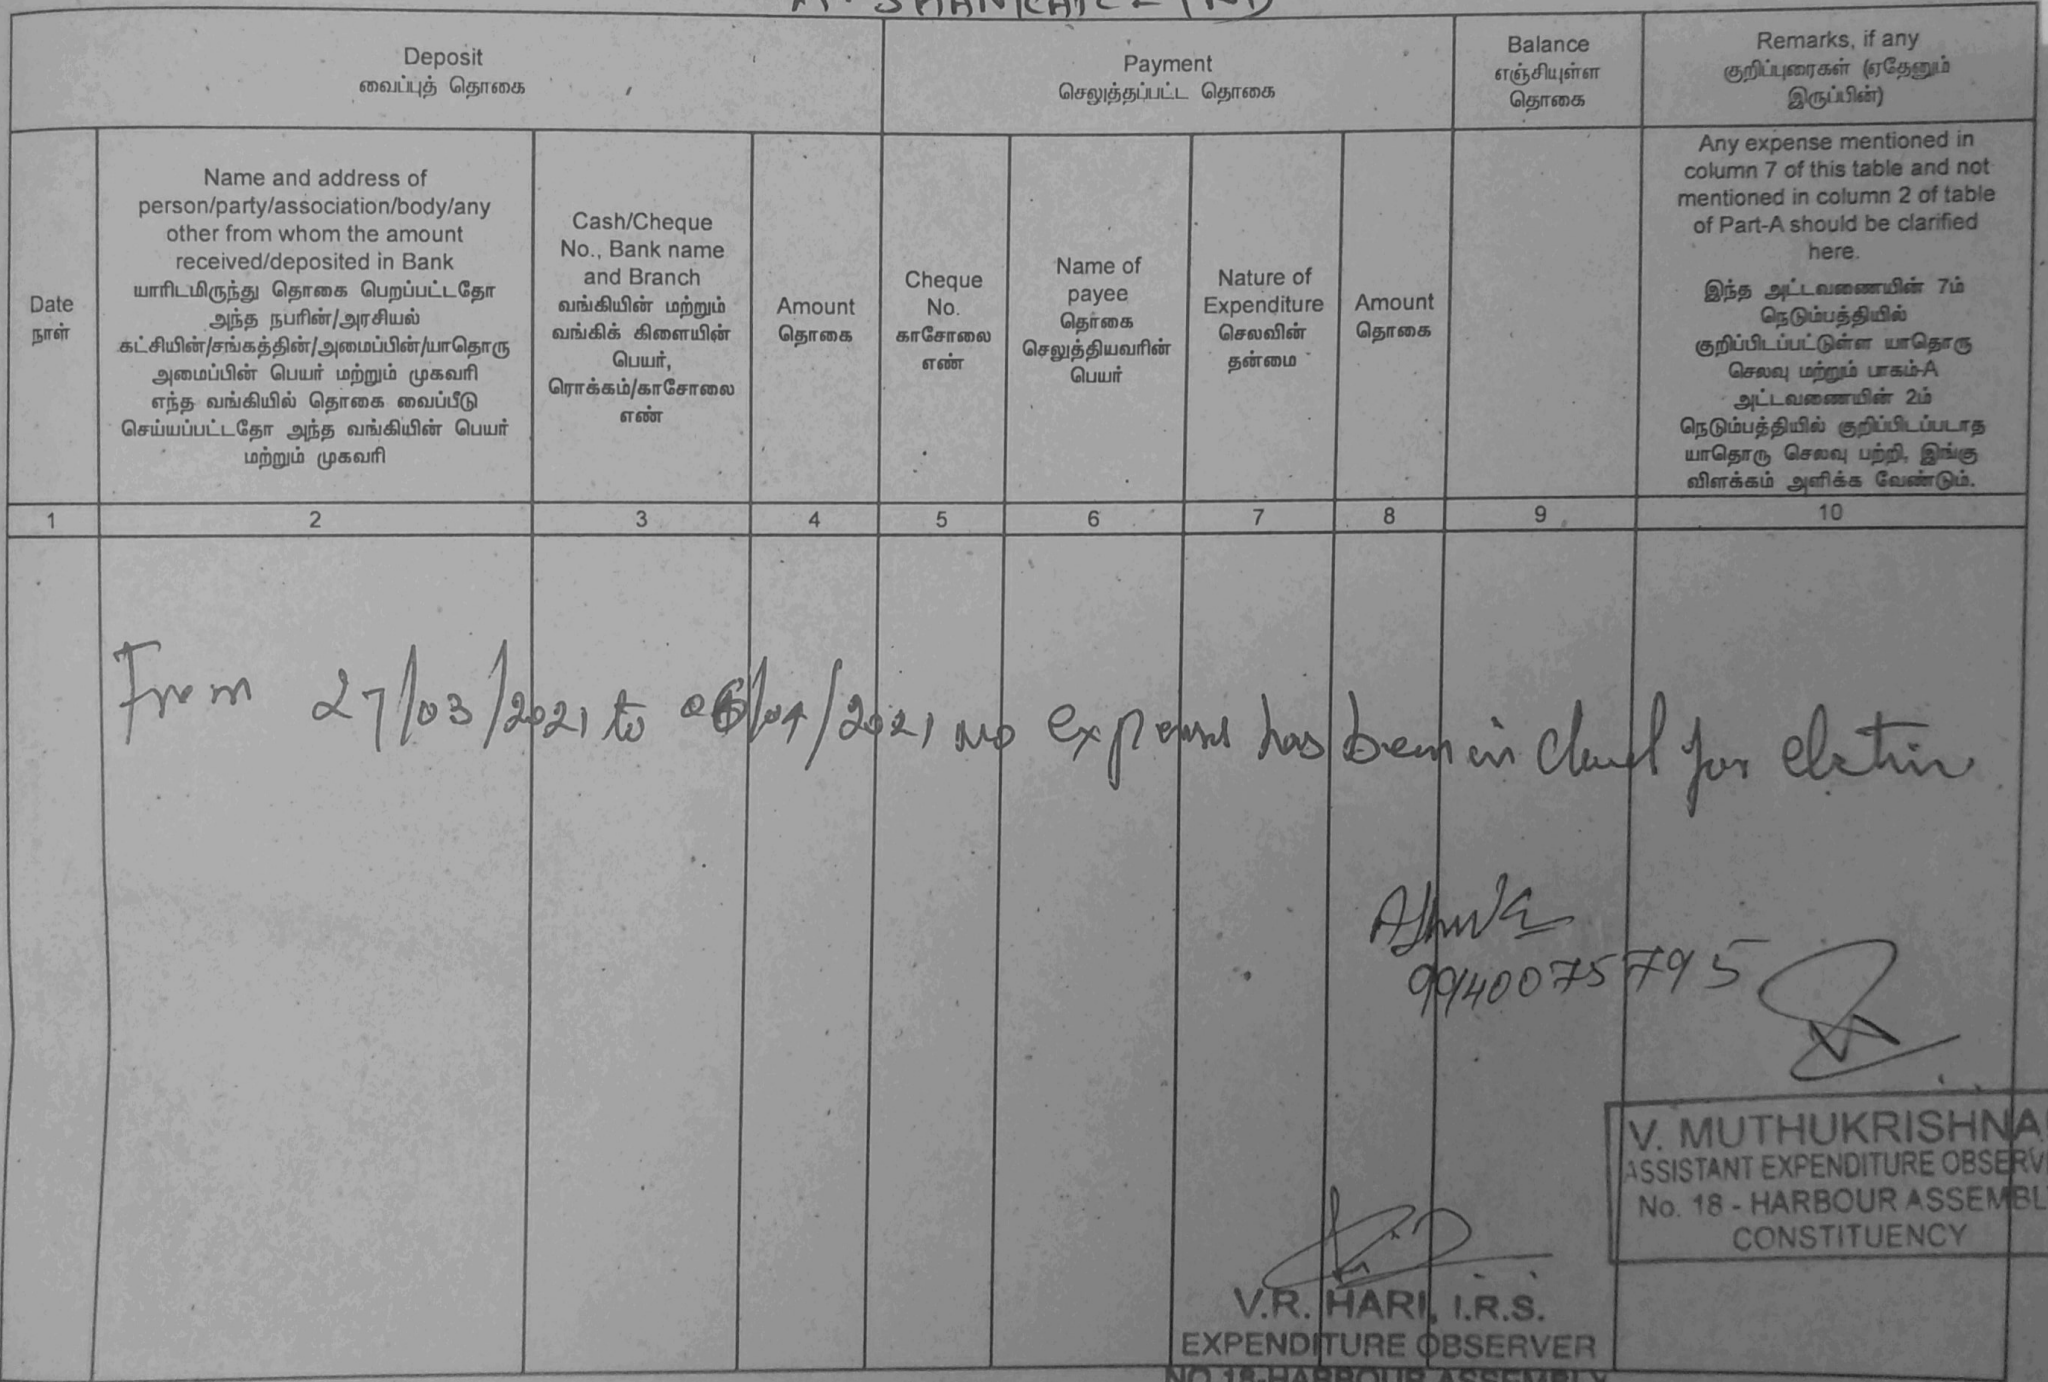 A. SHANKAR
Deposit
வைப்புத் தொகை
Payment
செலுத்தப்பட்ட தொகை
Balance
எஞ்சியுள்ள
தொகை
Remarks, if any
குறிப்புரைகள் (ஏதேனும்
இருப்பின்)
Date
நாள்
Name and address of
person/party/association/body/any
other from whom the amount
received/deposited in Bank
யாரிடமிருந்து தொகை பெறப்பட்டதோ
அந்த நபரின்/அரசியல்
கட்சியின்/சங்கத்தின்/அமைப்பின்/யாதொரு
அமைப்பின் பெயர் மற்றும் முகவரி
எந்த வங்கியில் தொகை வைப்பீடு
செய்யப்பட்டதோ அந்த வங்கியின் பெயர்
மற்றும் முகவரி
Cash/Cheque
No., Bank name
and Branch
வங்கியின் மற்றும்
வங்கிக் கிளையின்
பெயர்,
ரொக்கம்/காசோலை
எண்
Amount
தொகை
Cheque
No.
காசோலை
எண்
Name of
payee
தொகை
செலுத்தியவரின்
பெயர்
Nature of
Expenditure
செலவின்
தன்மை
Amount
தொகை
Any expense mentioned in
column 7 of this table and not
mentioned in column 2 of table
of Part-A should be clarified
here.
இந்த அட்டவணையின் 7ம்
நெடும்பத்தியில்
குறிப்பிடப்பட்டுள்ள யாதொரு
செலவு மற்றும் பாகம்-A
அட்டவணையின் 2ம்
நெடும்பத்தியில் குறிப்பிடப்படாத
யாதொரு செலவு பற்றி, இங்கு
விளக்கம் அளிக்க வேண்டும்.
1 2 3 4 5 6 7 8 9 10
From 27/03/2021 to 06/04/2021 no expenses has been in for election
9940075795
V. MUTHUKRISHNA
ASSISTANT EXPENDITURE OBSERV
No. 18 - HARBOUR ASSEMBL
CONSTITUENCY
V.R. HARI, I.R.S.
EXPENDITURE OBSERVER
NO.18-HARBOUR ASSEMBLY